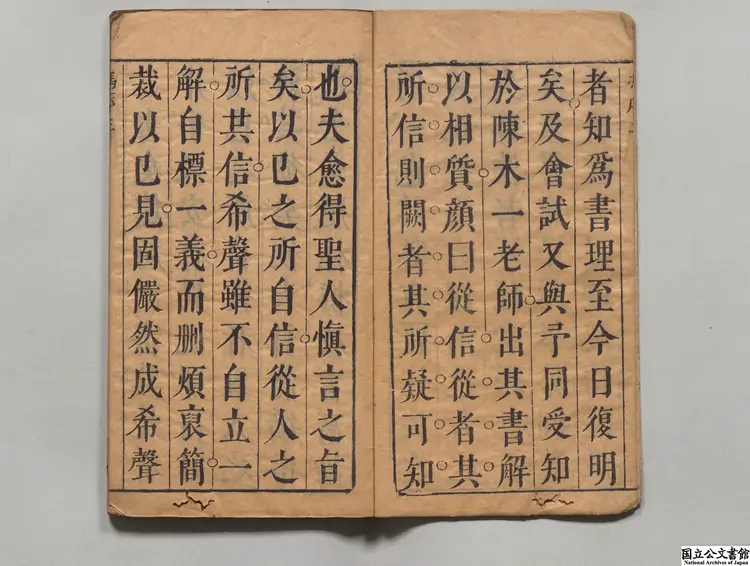 者知爲書理至今日復明
矣及會試又與予同受知
於陳木一老師出其書解
以相質顔曰從信從者其
所信則闕者其所疑可知
也夫愈得聖人愼言之旨
矣以已之所自信從人之
所共信希聲雖不自立一
解自標一義而删煩裒簡
裁以已見固儼然成希聲
国立公文書館
National Archives of Japan